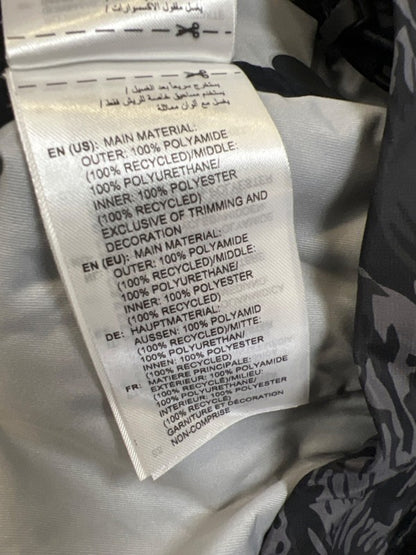 يغسل مقلوب الاكسسوارات /
يستخرج سريعا بعد الغسيل /
يستخدم مساحيق خاصة للريش فقط /
يغسل مع ألوان مماثلة
EN (US): MAIN MATERIAL:
OUTER: 100% POLYAMIDE
(100% RECYCLED)/MIDDLE:
100% POLYURETHANE/
INNER: 100% POLYESTER
(100% RECYCLED)
EXCLUSIVE OF TRIMMING AND
DECORATION
EN (EU): MAIN MATERIAL:
OUTER: 100% POLYAMIDE
(100% RECYCLED)/MIDDLE:
100% POLYURETHAN/
INNER: 100% POLYESTER
(100% RECYCLED)
DE: HAUPTMATERIAL:
AUSSEN: 100% POLYAMID
(100% RECYCLED)/MITTE:
100% POLYURETHAN/
INNEN: 100% POLYESTER
(100% RECYCLED)
FR: MATIERE PRINCIPALE:
EXTERIEUR: 100% POLYAMIDE
(100% RECYCLÉ)/MILIEU:
100% POLYURETHANE/
INTERIEUR: 100% POLYESTER
(100% RECYCLÉ)
GARNITURE ET DÉCORATION
NON-COMPRISE